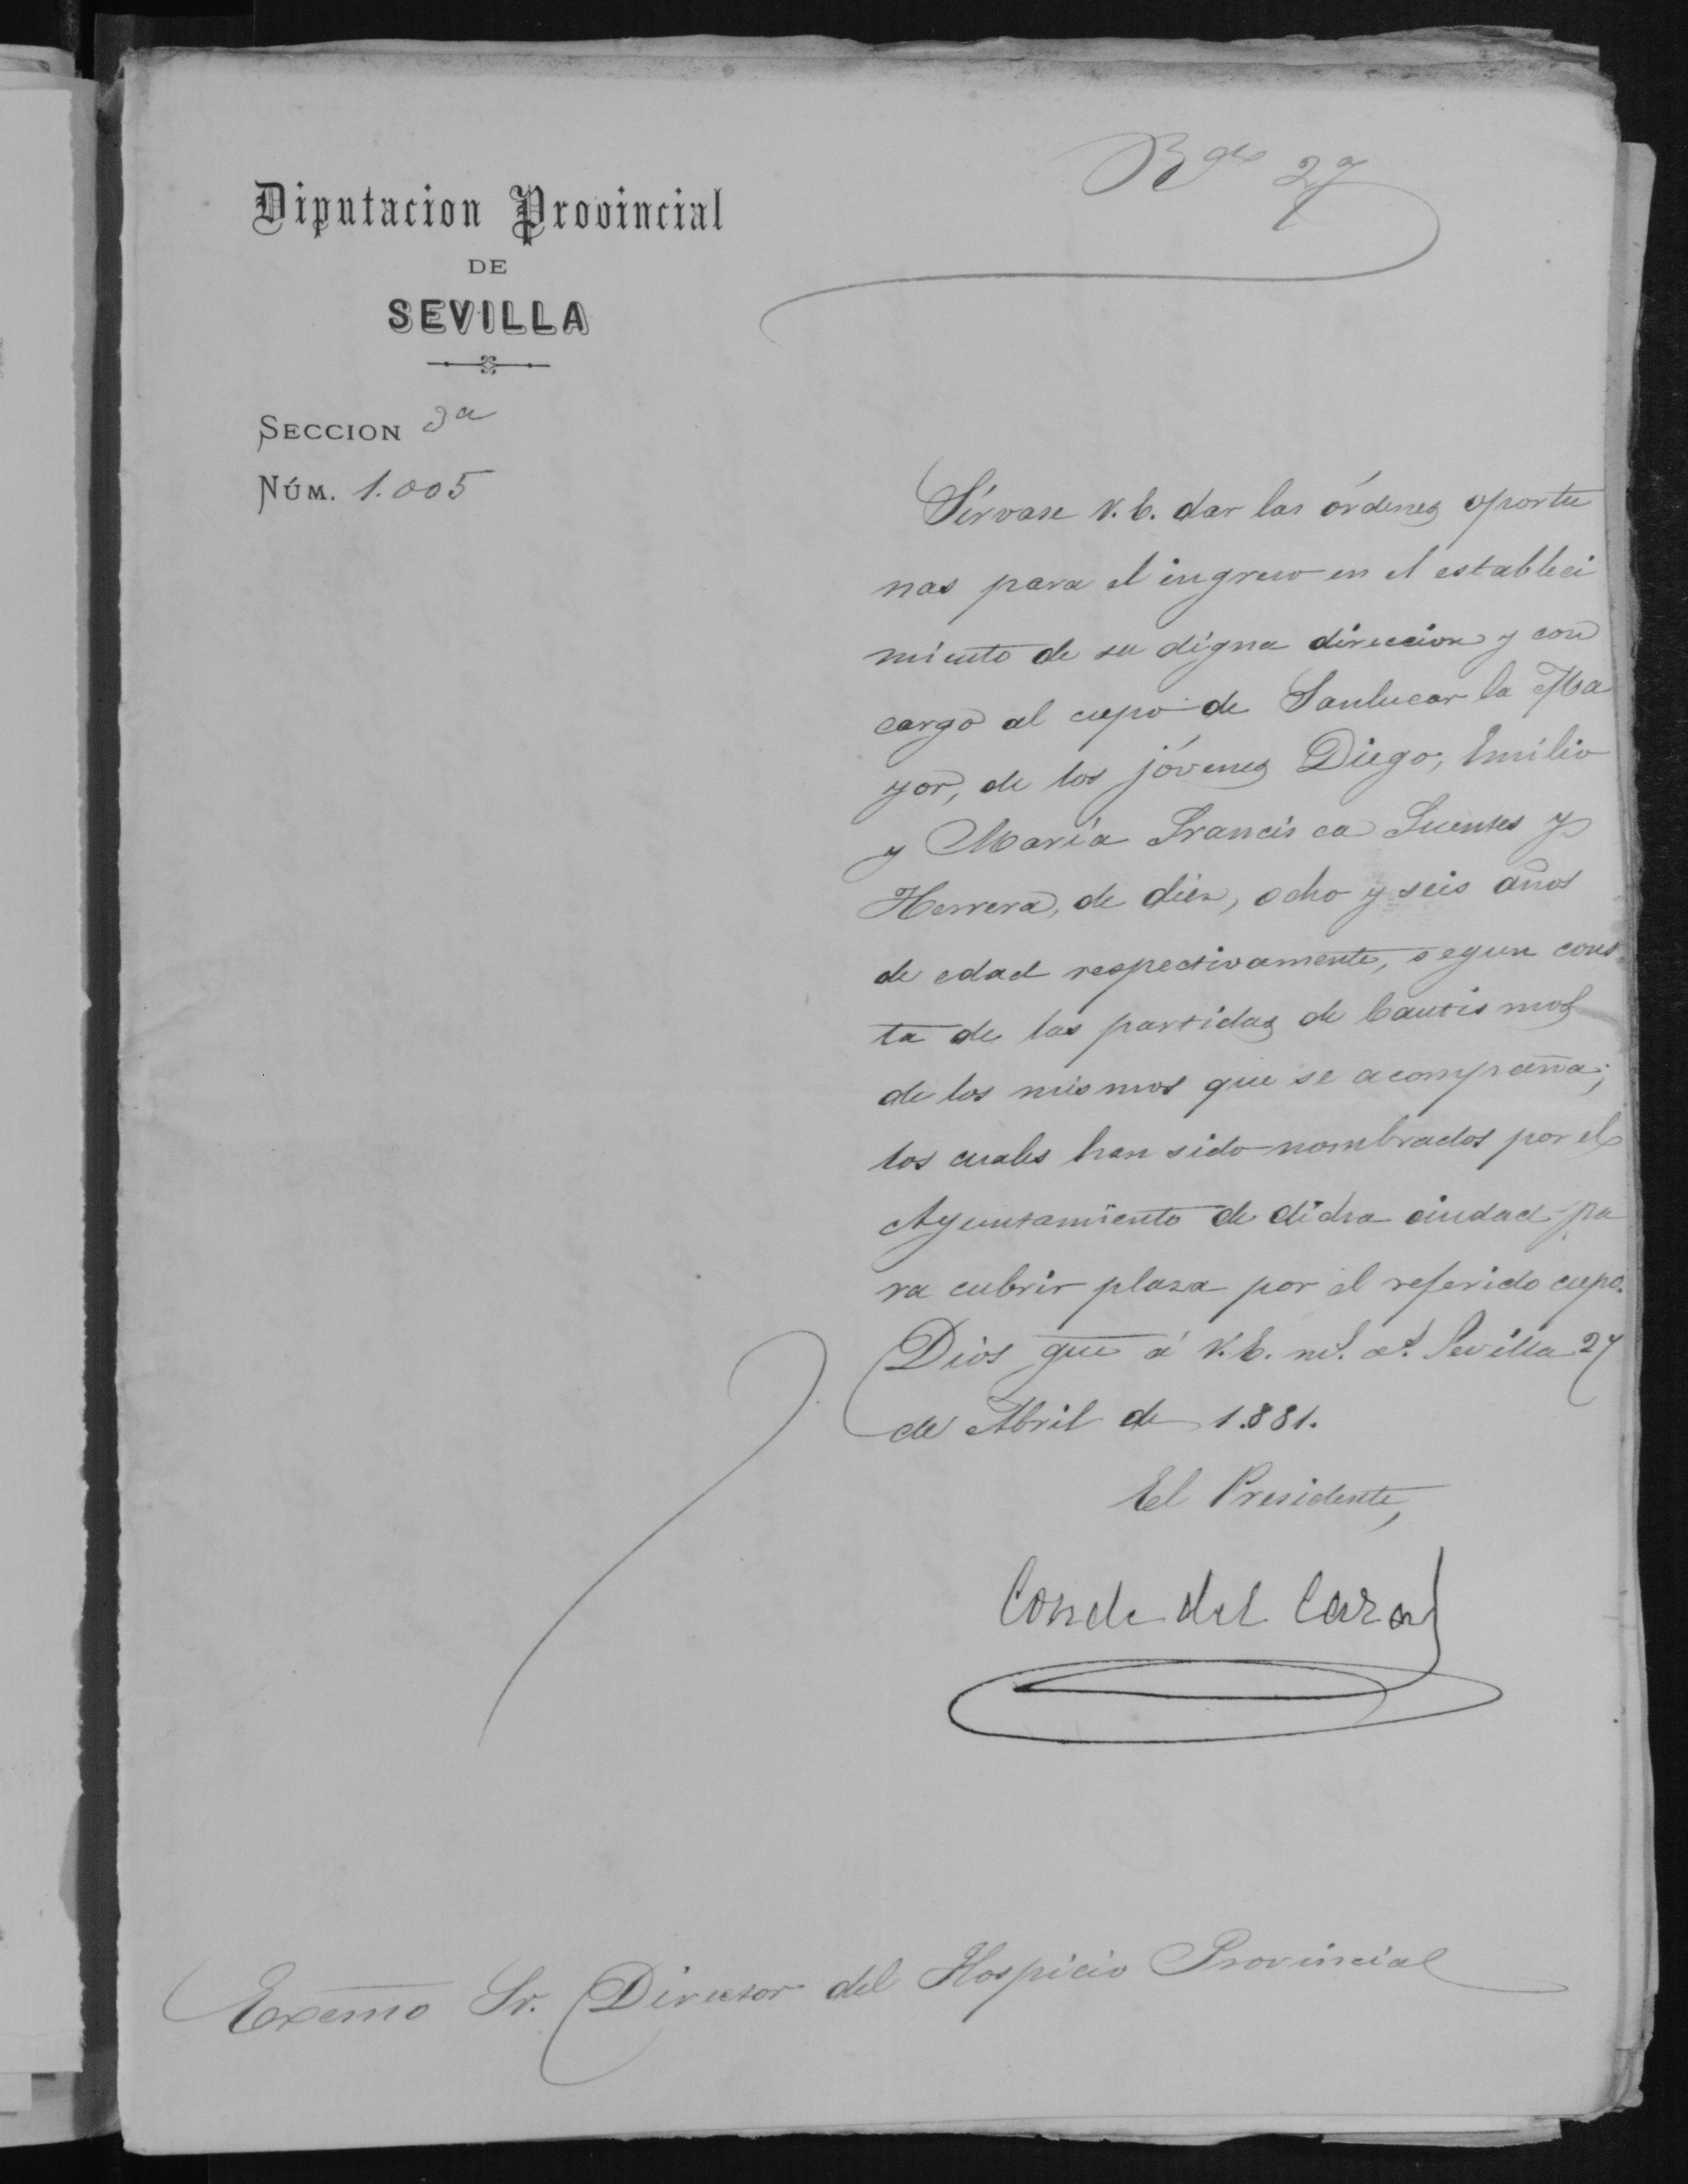 Diputacion Provincial
DE
SEVILLA
SECCION 3a
NÚM. 1.005
27
Sírvase V.E. dar las órdenes oportu
nas para el ingreso en el estableci
miento de su digna direccion y con
cargo al cupo de Sanlucar la Ma
yor, de los jóvenes Diego, Emilio
y María Francisca Fuentes y
Herrera, de diez, ocho y seis años
de edad respectivamente, segun cons
ta de las partidas de bautismos
de los mismos que se acompaña;
los cuales han sido nombrados por el
Ayuntamiento de dicha ciudad pa
ra cubrir plaza por el referido cupo.
Dios gue á V.E. ms. as. Sevilla 27
de Abril de 1.881.
El Presidente,
Conde del
Excmo Sr. Director del Hospicio Provincial